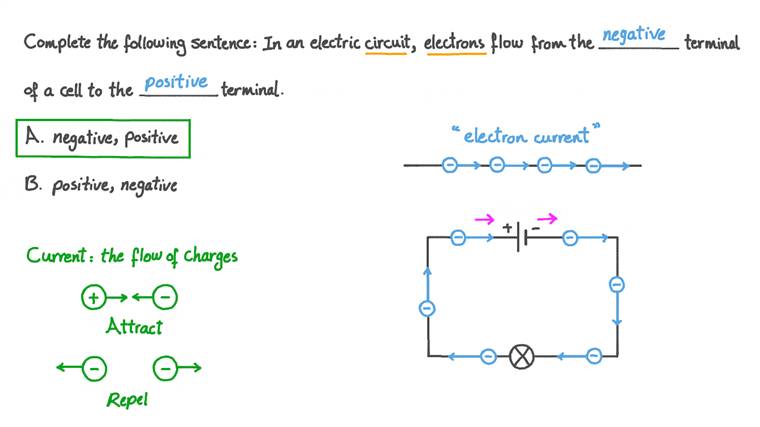 Complete the following sentence: In an electric circuit, electrons flow from the negative terminal
of a cell to the positive terminal.
A. negative, positive
B. positive, negative
"electron current"
Current: the flow of charges
+ −
Attract
− −
Repel
− − − −
+ −
− − − − − −